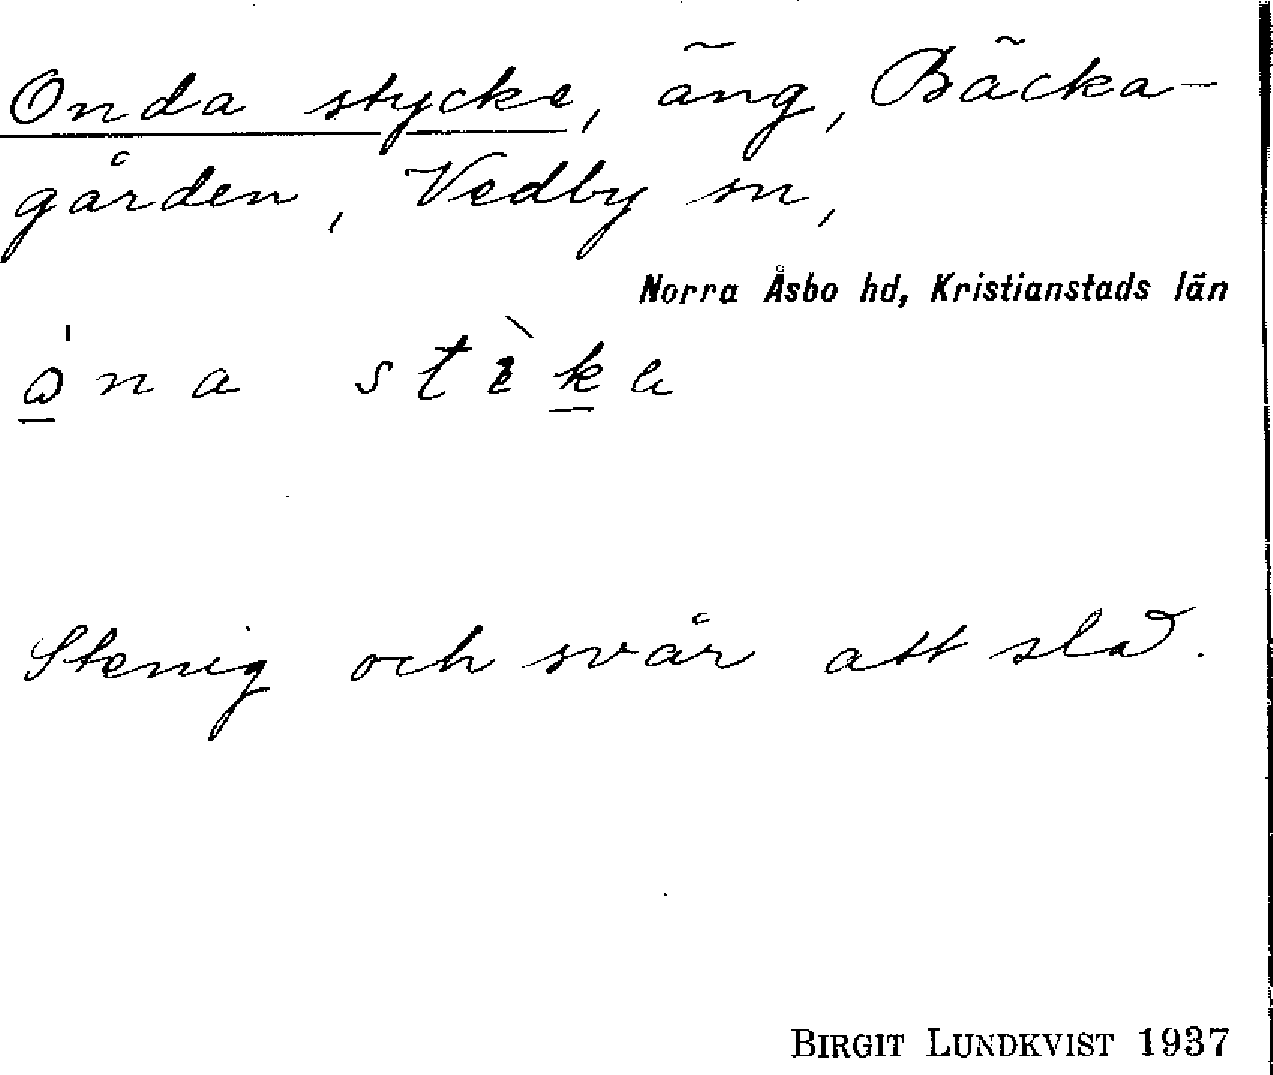 Onda stycke, äng, Bäcka-
gården, Vedby sn,
Norra Åsbo hd, Kristianstads län
Stenig och svår att slå.
BIRGIT LUNDKVIST 1937